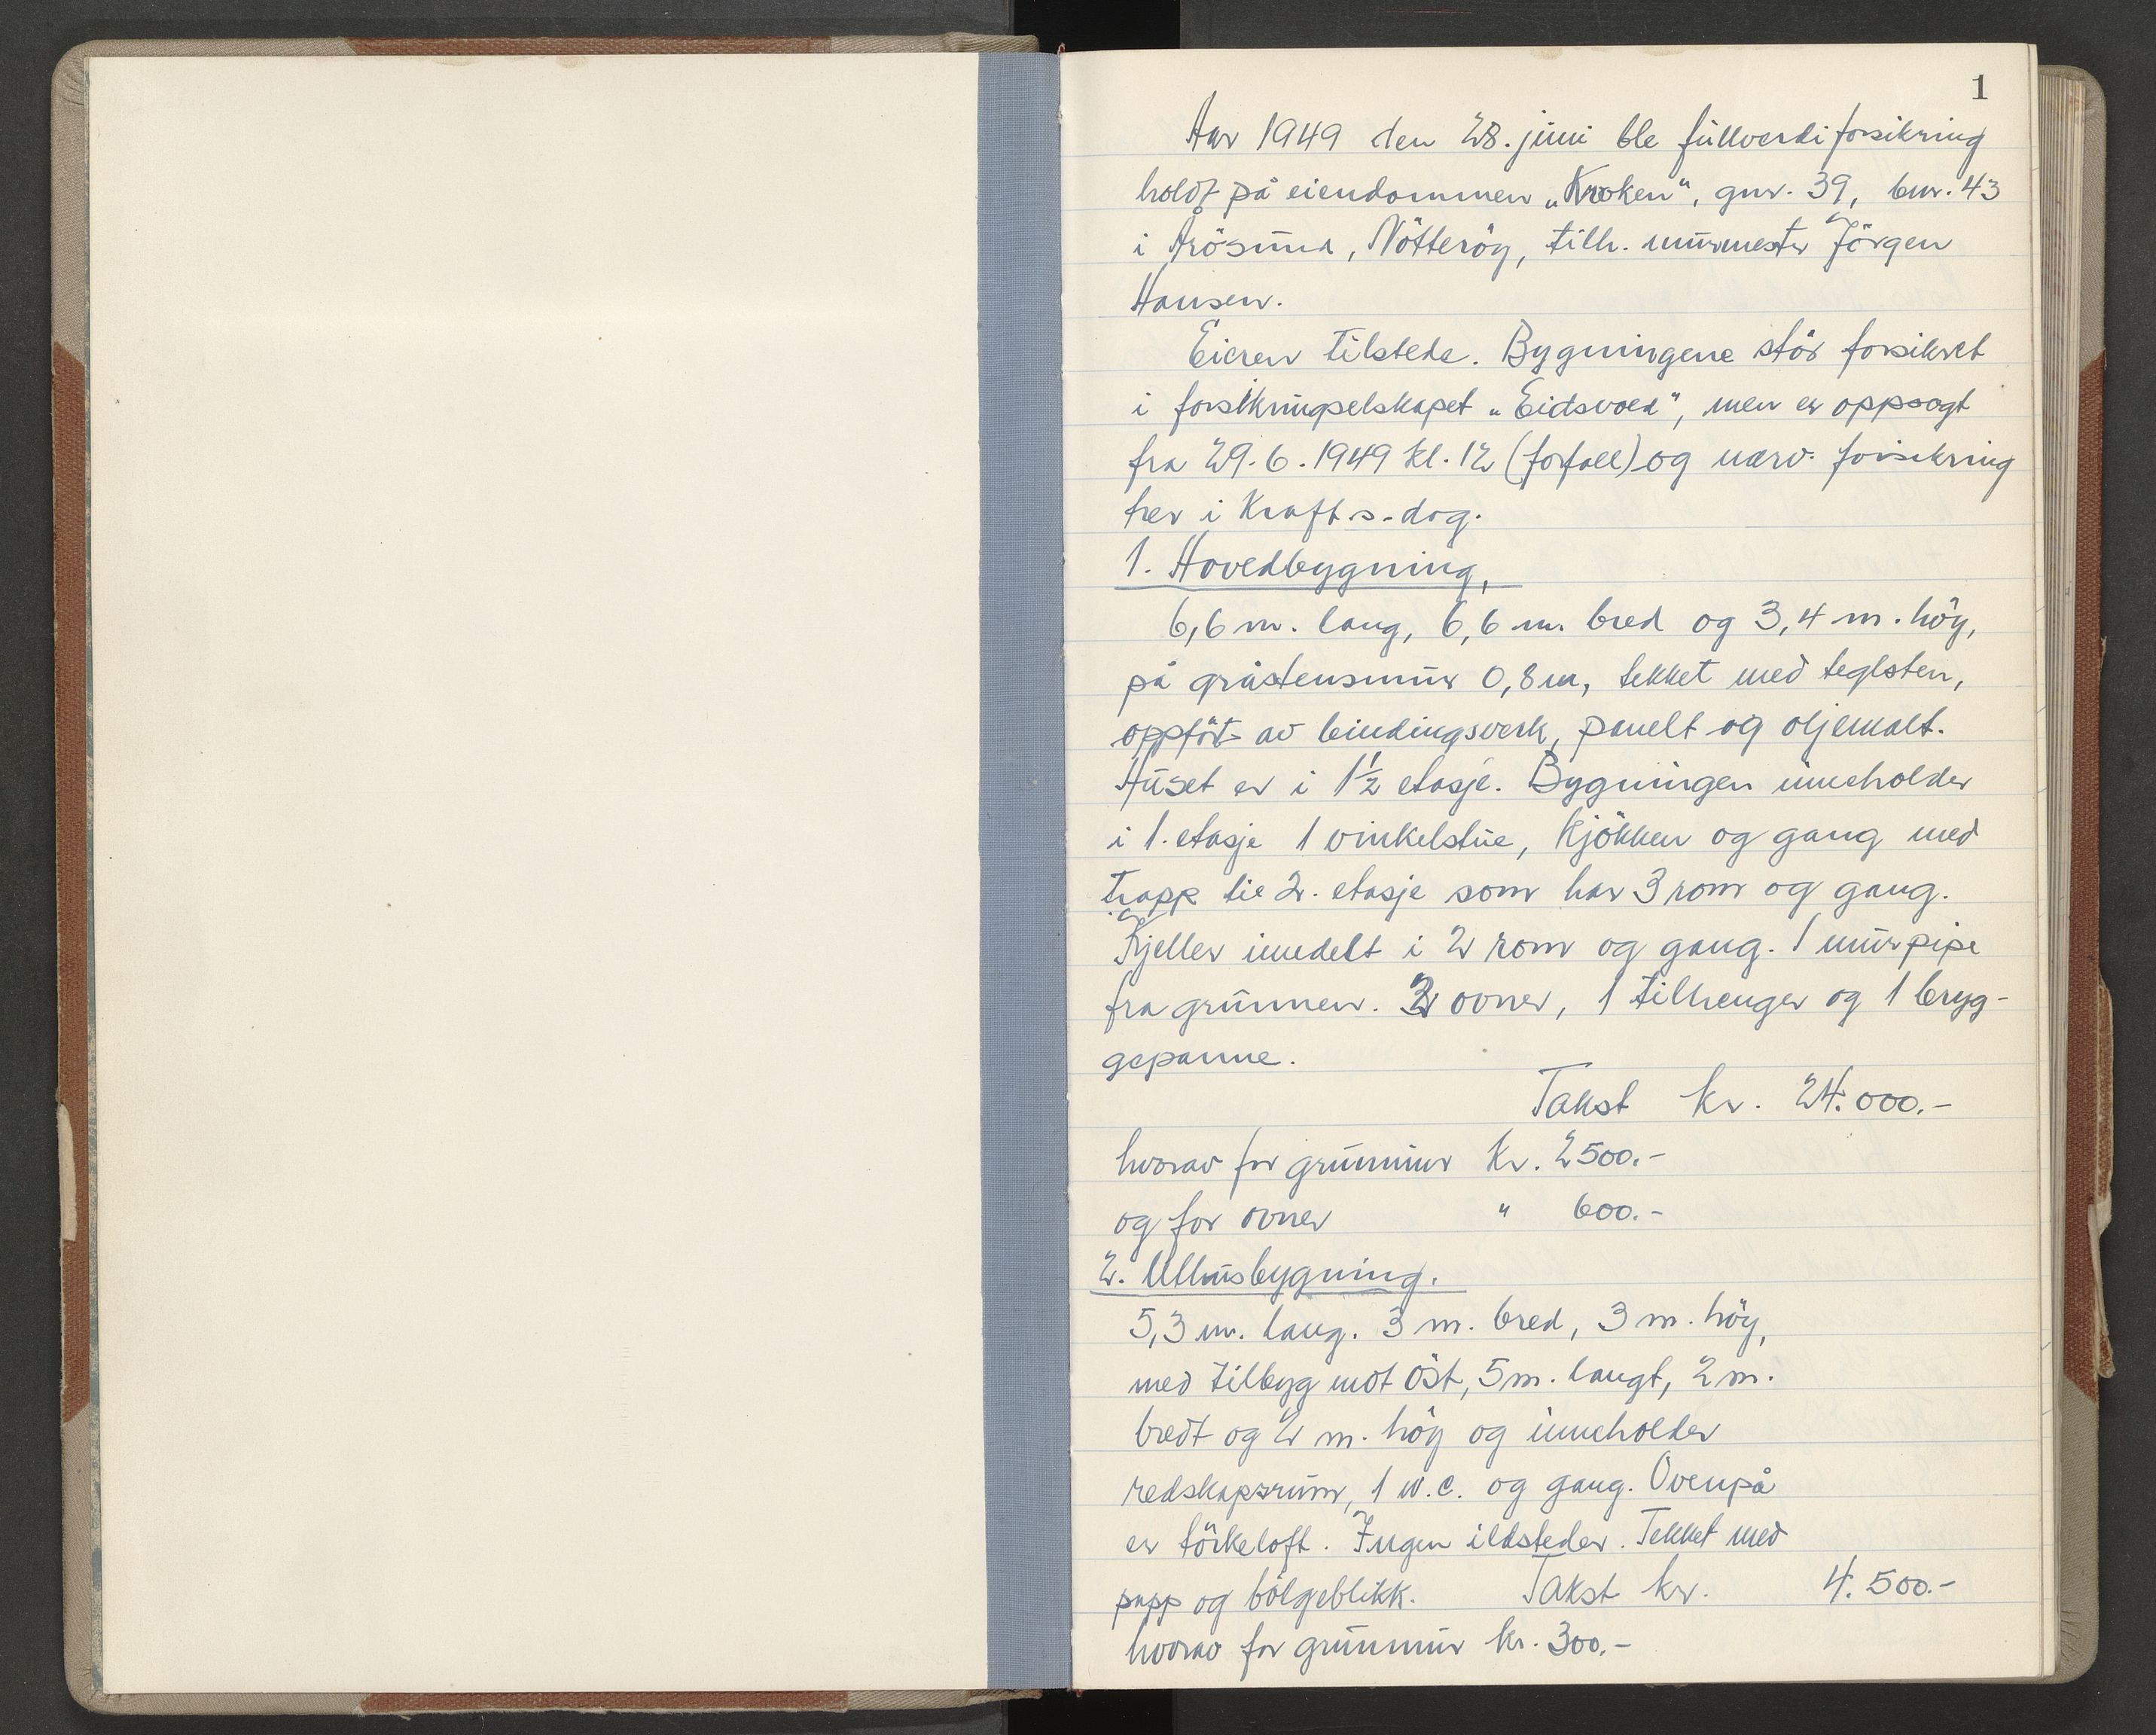 1
Aar 1949 den 28. juni ble fullverdiforsikring
holdt på eiendommen „Kroken“, gnr. 39, bnr. 43
i Årösund, Nötteröy, tilh. murmester Jörgen
Hansen.
Eieren tilstede. Bygningene står forsikret
i forsikringselskapet „Eidsvold“, men er oppsagt
fra 29.6.1949 kl. 12 (forfall) og nærv. forsikring
her i Kraft s. dag.
1. Hovedbygning,
6,6 m. lang, 6,6 m. bred og 3,4 m. höy,
på gråstensmur 0,8 m, tekket med teglsten,
oppfört av bindingsverk, panelt og oljemalt.
Huset er i 1½ etasje. Bygningen inneholder
i 1. etasje 1 vinkelstue, kjökken og gang med
trapp til 2. etasje som har 3 rom og gang.
Kjeller inndelt i 2 rom og gang. 1 murpipe
fra grunnen. 3 ovner, 1 tilhenger og 1 bryg-
gepanne.
Takst kr. 24.000.-
hvorav for grunnmur kr. 2500.-
og for ovner " 600.-
2. Uthusbygning.
5,3 m. lang. 3 m. bred, 3 m. höy,
med tilbyg mot öst, 5 m. langt, 2 m.
bredt og 2 m. höy og inneholder
redskapsrum, 1 w.c. og gang. Ovenpå
er törkeloft. Ingen ildsteder. Tekket med
papp og bölgeblikk. Takst kr. 4.500.-
hvorav for grunnmur kr. 300.-